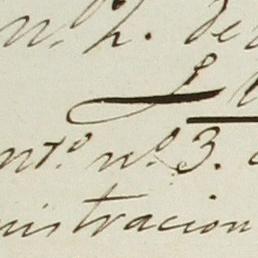 nº 2. de
nto. nº 3.
nistracion